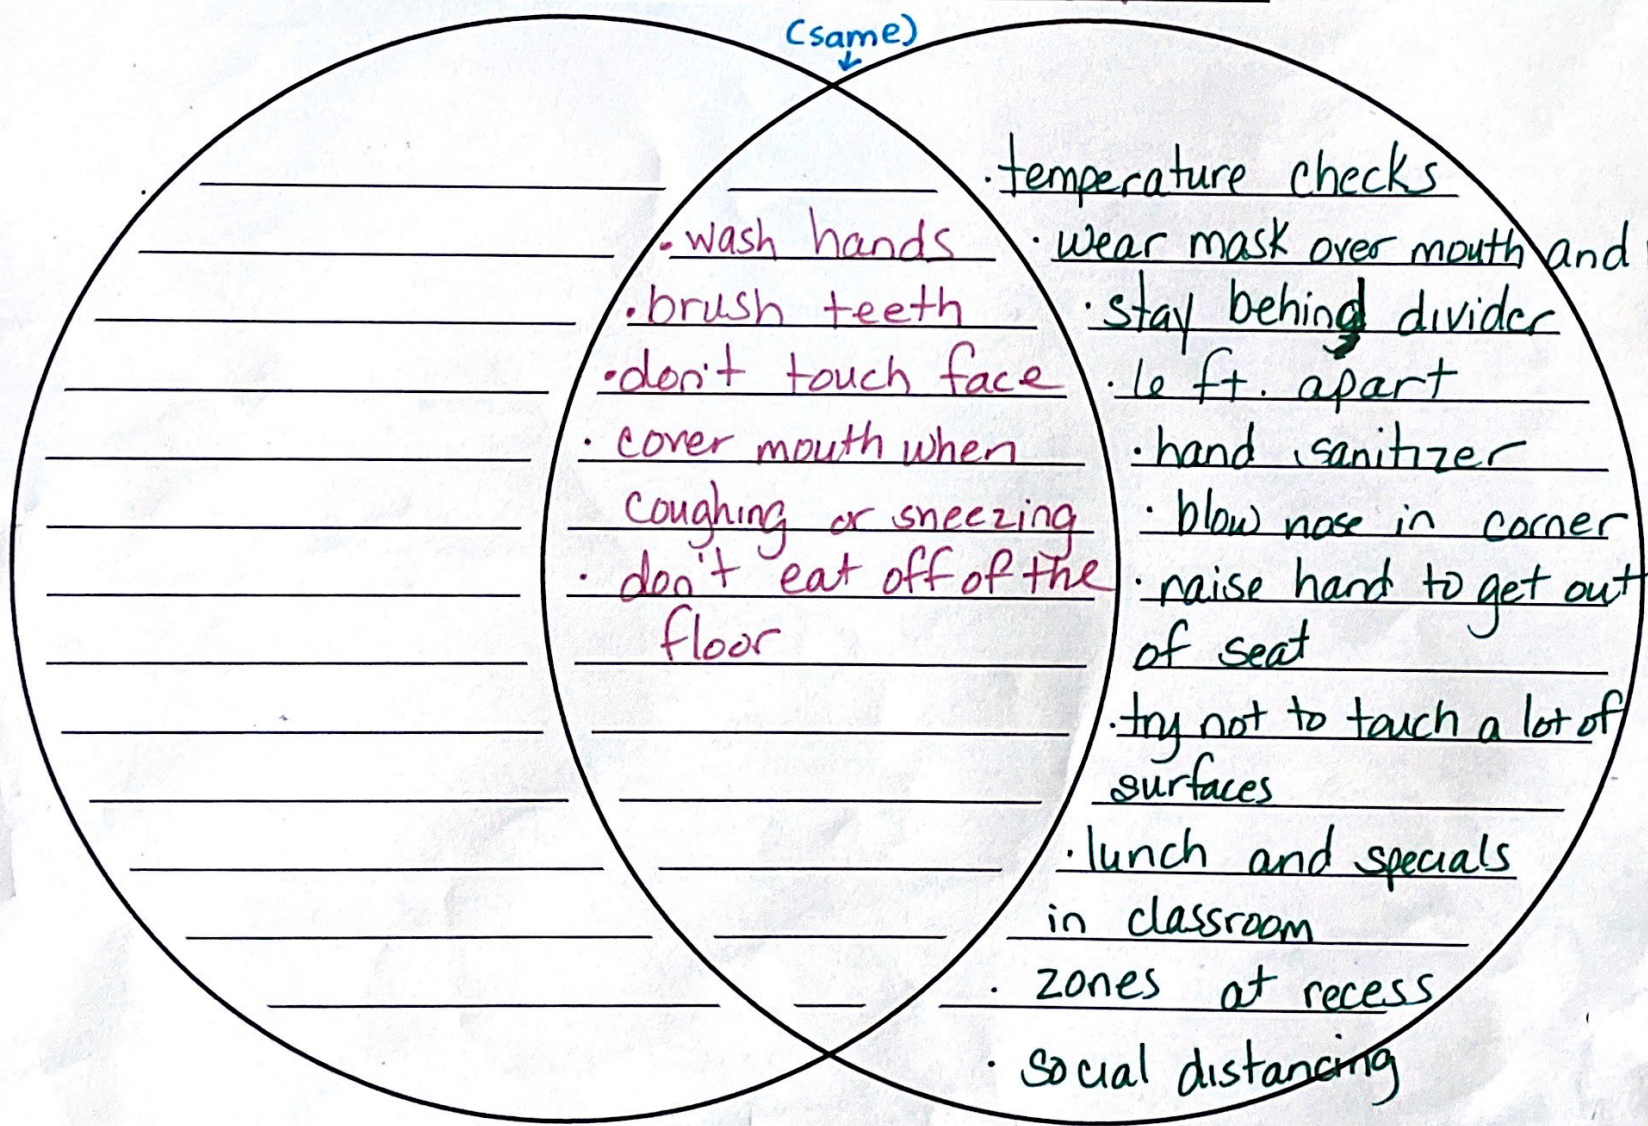 (same)
· wash hands
· brush teeth
· don't touch face
· cover mouth when
coughing or sneezing
· don't eat off of the
floor
· temperature checks
· wear mask over mouth and
· stay behind divider
· 6 ft. apart
· hand sanitizer
· blow nose in corner
· raise hand to get out
of seat
· try not to touch a lot of
surfaces
· lunch and specials
in classroom
· zones at recess
· social distancing